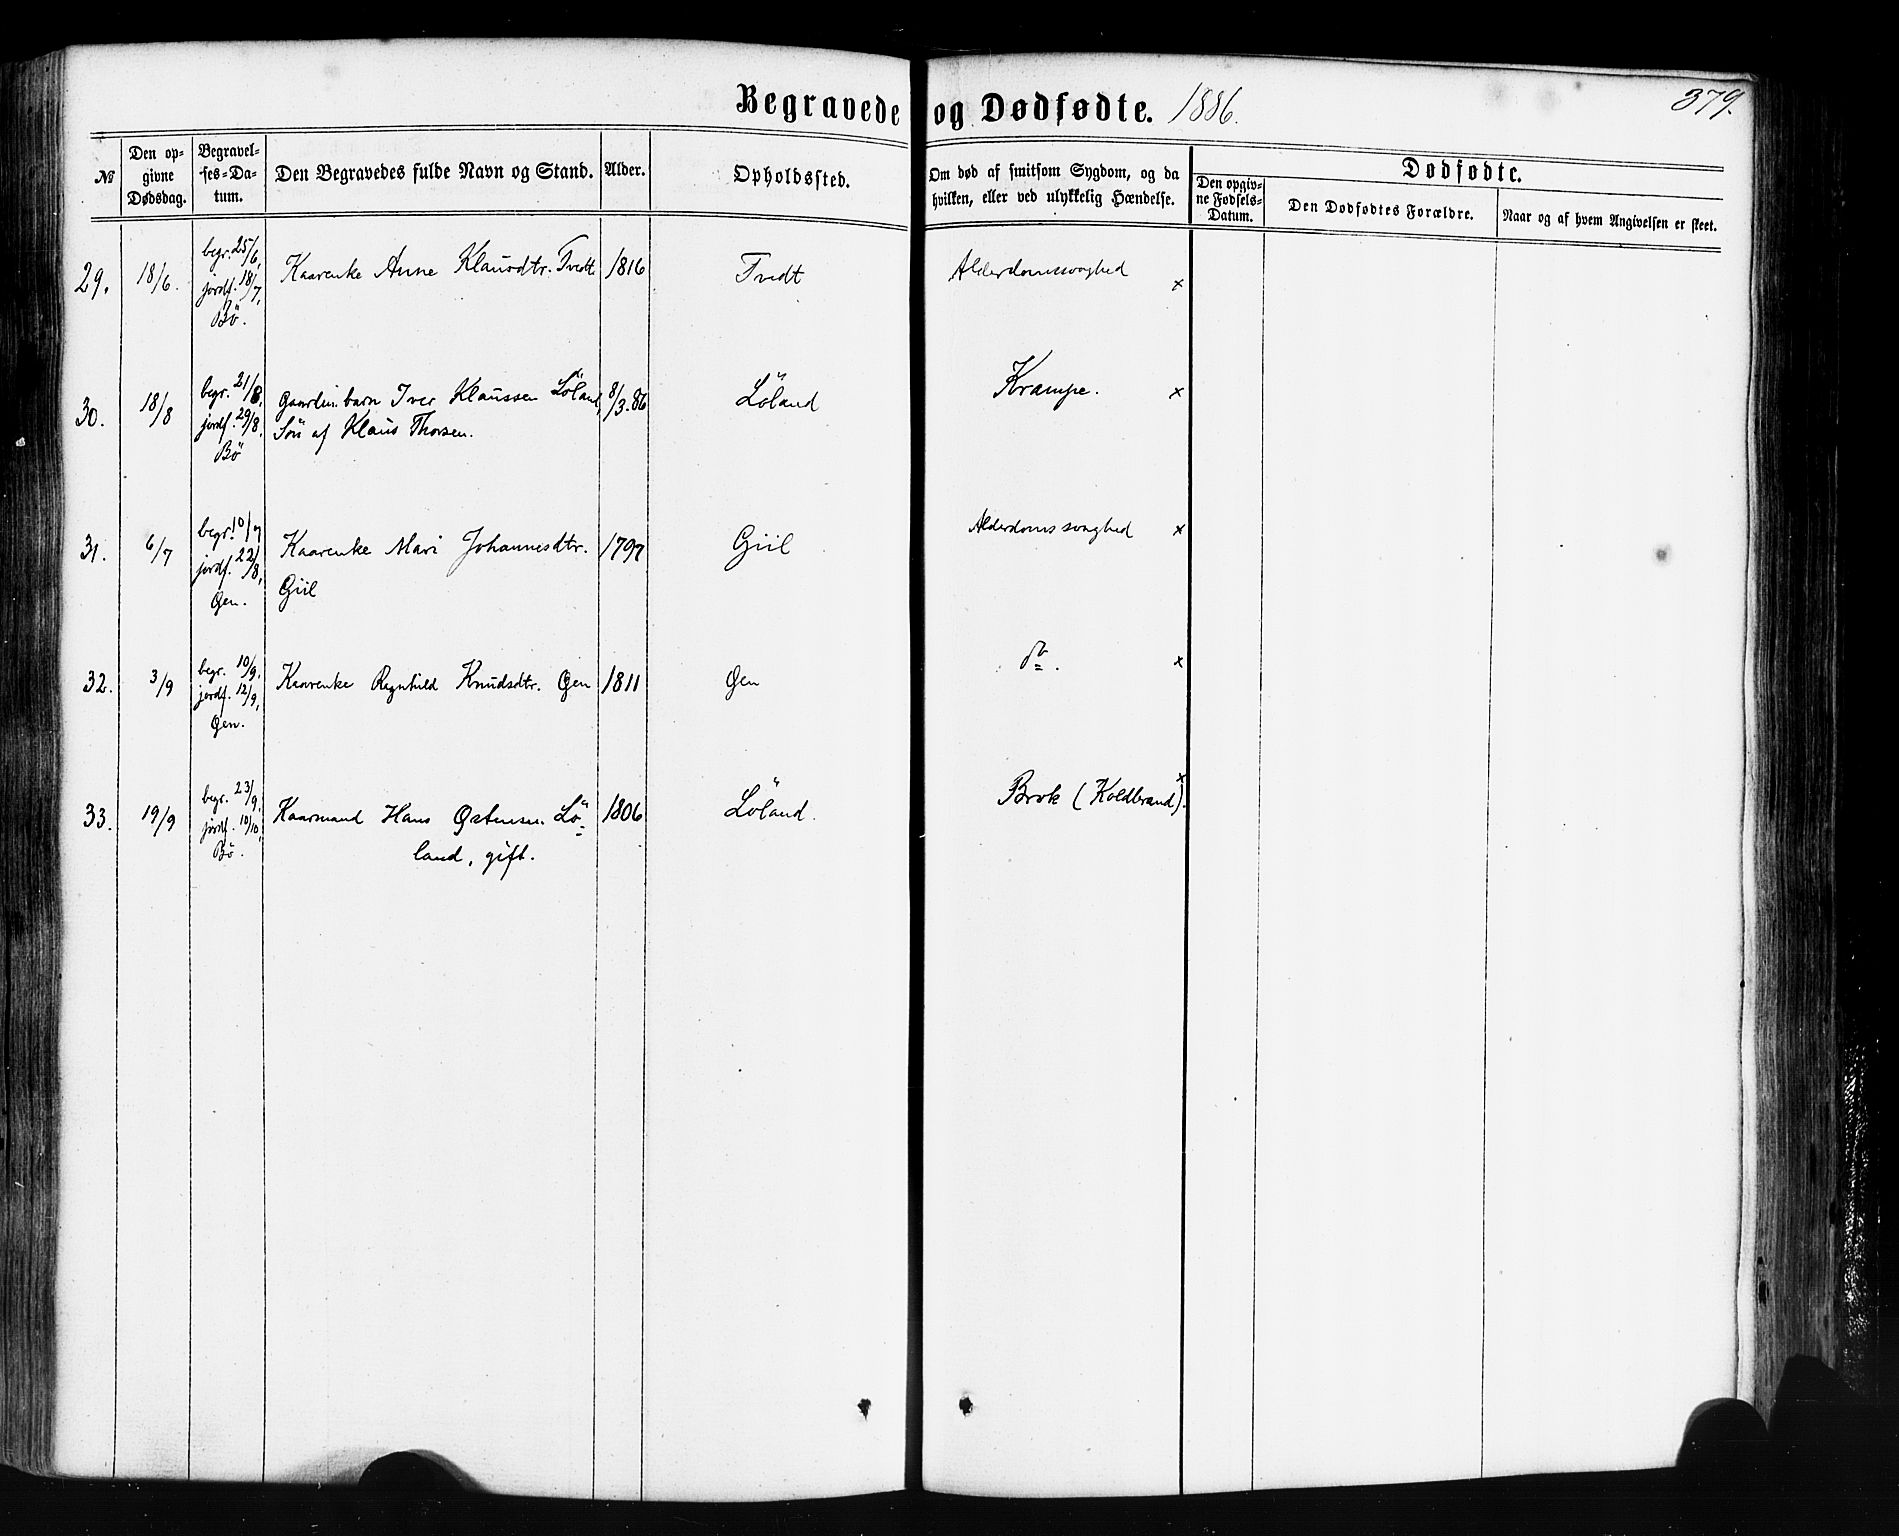 Begravede og Dødfødte. 1886.
379.
№
Den op-
givne
Dødsdag.
Begravel-
ses-Da-
tum.
Den Begravedes fulde Navn og Stand.
Alder.
Opholdssted.
Om død af smitsom Sygdom, og da
hvilken, eller ved ulykkelig Hændelse.
Dødfødte.
Den opgiv-
ne Fødsels-
Datum.
Den Dødfødtes Forældre.
Naar og af hvem Angivelsen er skeet.
29. 18/6. begr. 25/6, Kaarenke Anne Klausdtr. Tvedt 1816 Tvedt Alderdomssvaghed x
jordf. 18/7,
Bö.
30. 18/8 begr. 21/8, Gaardm. barn Iver Klaussen Löland, 8/3.86 Löland Krampe. x
jordf. 29/8. Sön af Klaus Thorsen.
Bö
31. 6/7 begr. 10/7 Kaarenke Mari Johannesdtr. 1797 Giil Alderdomssvaghed x
jordf. 22/8, Giil
Øen.
32. 3/9 begr. 10/9. Kaarenke Ragnhild Knudsdtr. Øen 1811 Øen do. x
jordf. 12/9,
Øen.
33. 19/9 begr. 23/9. Kaarmand Hans Østensen Lö- 1806 Löland. Brok (Koldbrand). x
jordf. 10/10, land, gift.
Bö.